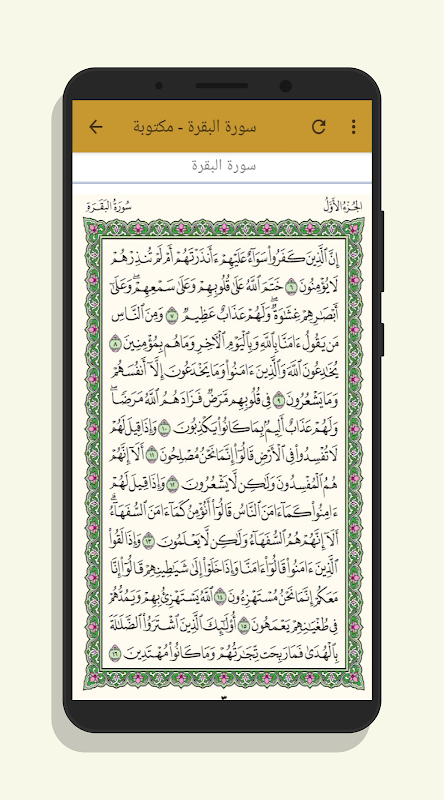 سورة البقرة - مكتوبة
سورة البقرة
الجزء الأول
سورة البقرة
إِنَّ ٱلَّذِينَ كَفَرُواْ سَوَآءٌ عَلَيْهِمْ ءَأَنذَرْتَهُمْ أَمْ لَمْ تُنذِرْهُمْ
لَا يُؤْمِنُونَ ٦ خَتَمَ ٱللَّهُ عَلَىٰ قُلُوبِهِمْ وَعَلَىٰ سَمْعِهِمْۖ وَعَلَىٰٓ
أَبْصَٰرِهِمْ غِشَٰوَةٌۖ وَلَهُمْ عَذَابٌ عَظِيمٌ ٧ وَمِنَ ٱلنَّاسِ
مَن يَقُولُ ءَامَنَّا بِٱللَّهِ وَبِٱلْيَوْمِ ٱلْأٓخِرِ وَمَا هُم بِمُؤْمِنِينَ ٨
يُخَٰدِعُونَ ٱللَّهَ وَٱلَّذِينَ ءَامَنُواْ وَمَا يَخْدَعُونَ إِلَّآ أَنفُسَهُمْ
وَمَا يَشْعُرُونَ ٩ فِي قُلُوبِهِم مَّرَضٌ فَزَادَهُمُ ٱللَّهُ مَرَضًاۖ
وَلَهُمْ عَذَابٌ أَلِيمٌۢ بِمَا كَانُواْ يَكْذِبُونَ ١٠ وَإِذَا قِيلَ لَهُمْ
لَا تُفْسِدُواْ فِي ٱلْأَرْضِ قَالُوٓاْ إِنَّمَا نَحْنُ مُصْلِحُونَ ١١ أَلَآ إِنَّهُمْ
هُمُ ٱلْمُفْسِدُونَ وَلَٰكِن لَّا يَشْعُرُونَ ١٢ وَإِذَا قِيلَ لَهُمْ
ءَامِنُواْ كَمَآ ءَامَنَ ٱلنَّاسُ قَالُوٓاْ أَنُؤْمِنُ كَمَآ ءَامَنَ ٱلسُّفَهَآءُۗ
أَلَآ إِنَّهُمْ هُمُ ٱلسُّفَهَآءُ وَلَٰكِن لَّا يَعْلَمُونَ ١٣ وَإِذَا لَقُواْ
ٱلَّذِينَ ءَامَنُواْ قَالُوٓاْ ءَامَنَّا وَإِذَا خَلَوْاْ إِلَىٰ شَيَٰطِينِهِمْ قَالُوٓاْ إِنَّا
مَعَكُمْ إِنَّمَا نَحْنُ مُسْتَهْزِءُونَ ١٤ ٱللَّهُ يَسْتَهْزِئُ بِهِمْ وَيَمُدُّهُمْ
فِي طُغْيَٰنِهِمْ يَعْمَهُونَ ١٥ أُوْلَٰٓئِكَ ٱلَّذِينَ ٱشْتَرَوُاْ ٱلضَّلَٰلَةَ
بِٱلْهُدَىٰ فَمَا رَبِحَت تِّجَٰرَتُهُمْ وَمَا كَانُواْ مُهْتَدِينَ ١٦